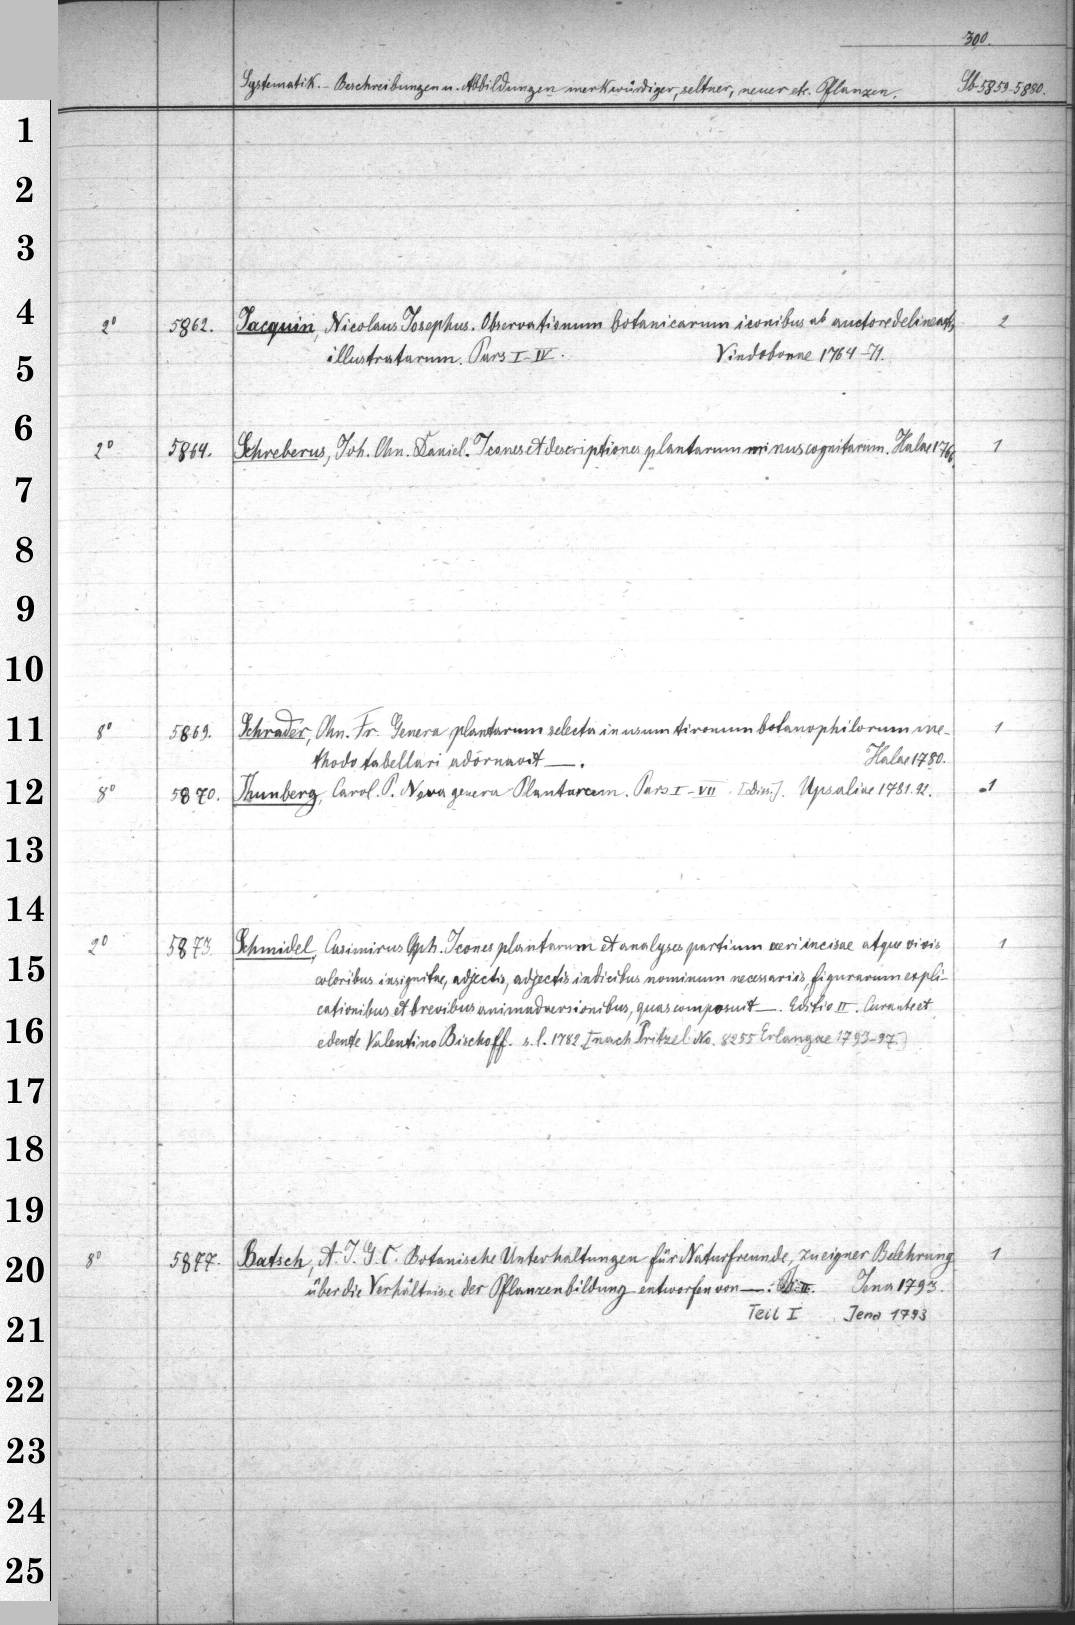 300.
Systematik. - Beschreibungen u. Abbildungen merkwürdiger, seltner, neuer etc. Pflanzen. Sb 5859-5880.
1
2
3
4
2° 5862. Jacquin, Nicolaus Josephus. Observationum botanicarum iconibus ab auctore delineatis 2
illustratarum. Pars I-IV. Vindobonae 1764-71.
5
6
2° 5864. Schreberus, Joh. Chn. Daniel. Icones et descriptiones plantarum minus cognitarum. Halae 1766. 1
7
8
9
10
11
8° 5869. Schrader, Chn. Fr. Genera plantarum selecta in usum tironum botanophilorum me- 1
thodo tabellari adornavit —. Halae 1780.
12
8° 5870. Thunberg, Carol. P. Nova genera Plantarum. Pars I-VII [Diss.]. Upsaliae 1781.92. 1
13
14
2° 5873. Schmidel, Casimirus Cph. Icones plantarum et analyses partium aeri incisae atque vivis 1
15
coloribus insignitae, adjectis, adjectis indicibus nominum necessariis, figurarum expli-
cationibus et brevibus animadversionibus, quas composuit —. Editio II. Curante et
16
edente Valentino Bischoff. s. l. 1782 [nach Pritzel No. 8255 Erlangae 1793-97]
17
18
19
20
8° 5877. Batsch, A. J. G. C. Botanische Unterhaltungen für Naturfreunde, zu eigner Belehrung 1
über die Verhältnisse der Pflanzenbildung entworfen von —. II. Jena 1793.
Teil I Jena 1793
21
22
23
24
25